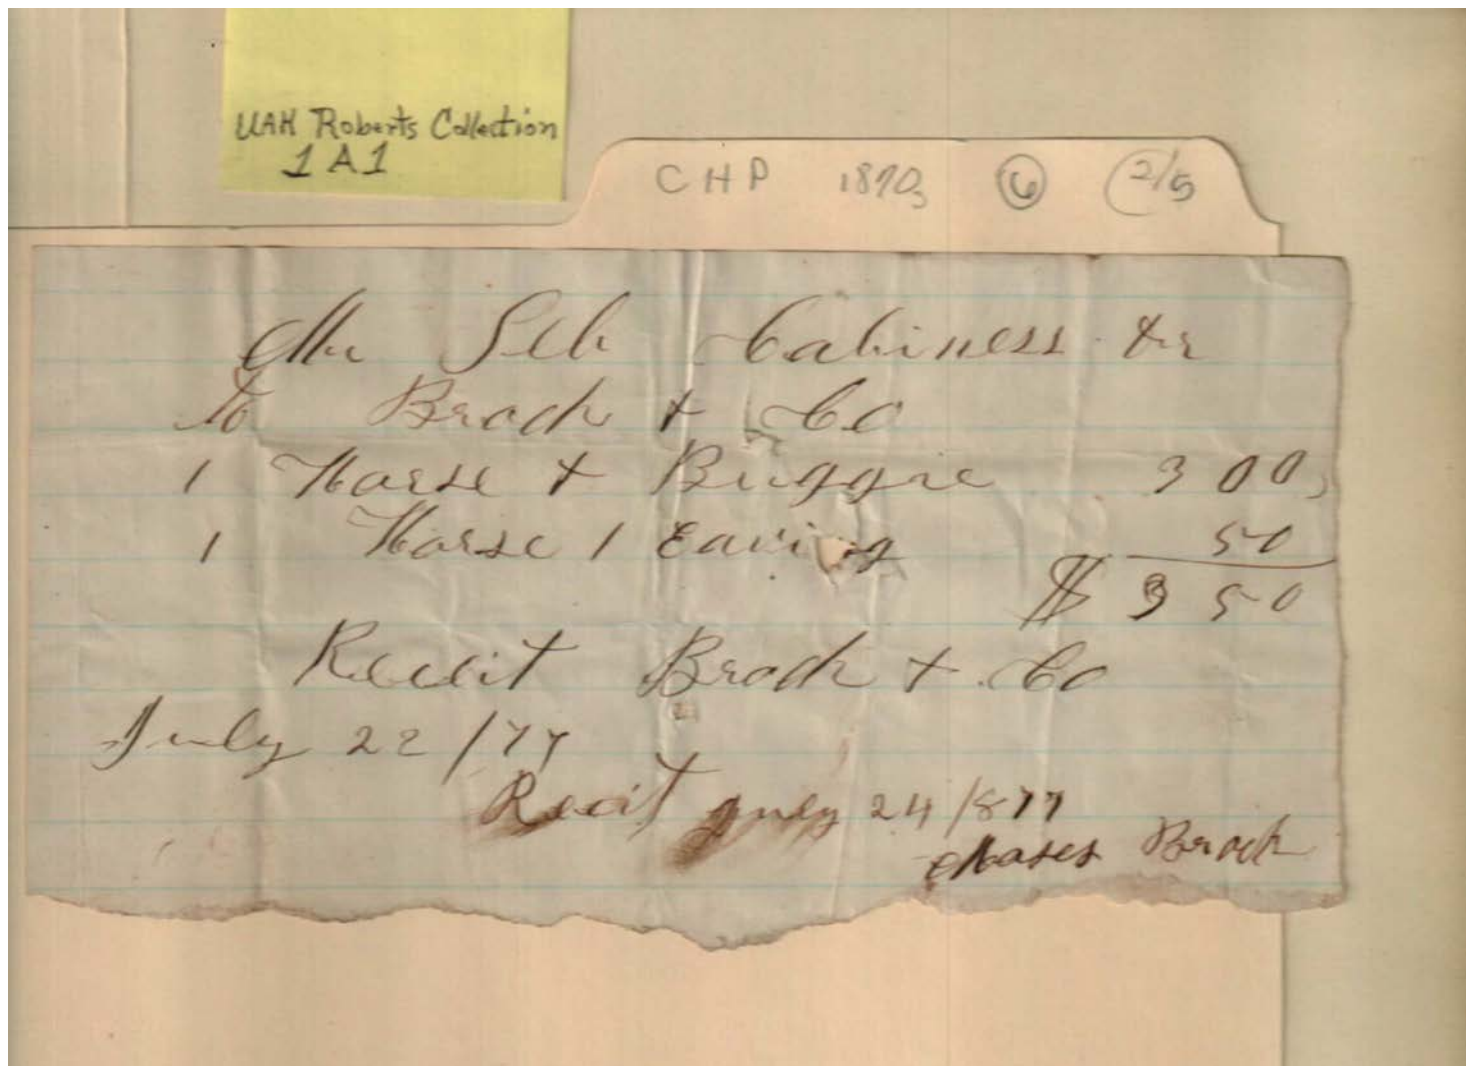 UAH Roberts Collection
1A1
CHP 1870s 6 2/5
Mr Seb Cabiness Dr
To Brock + Co
1 Horse + Buggie 300
1 Horse 1 Eaving 50
$ 350
Receit Brock + Co
July 22/77
Receit July 24/877
Moses Brock